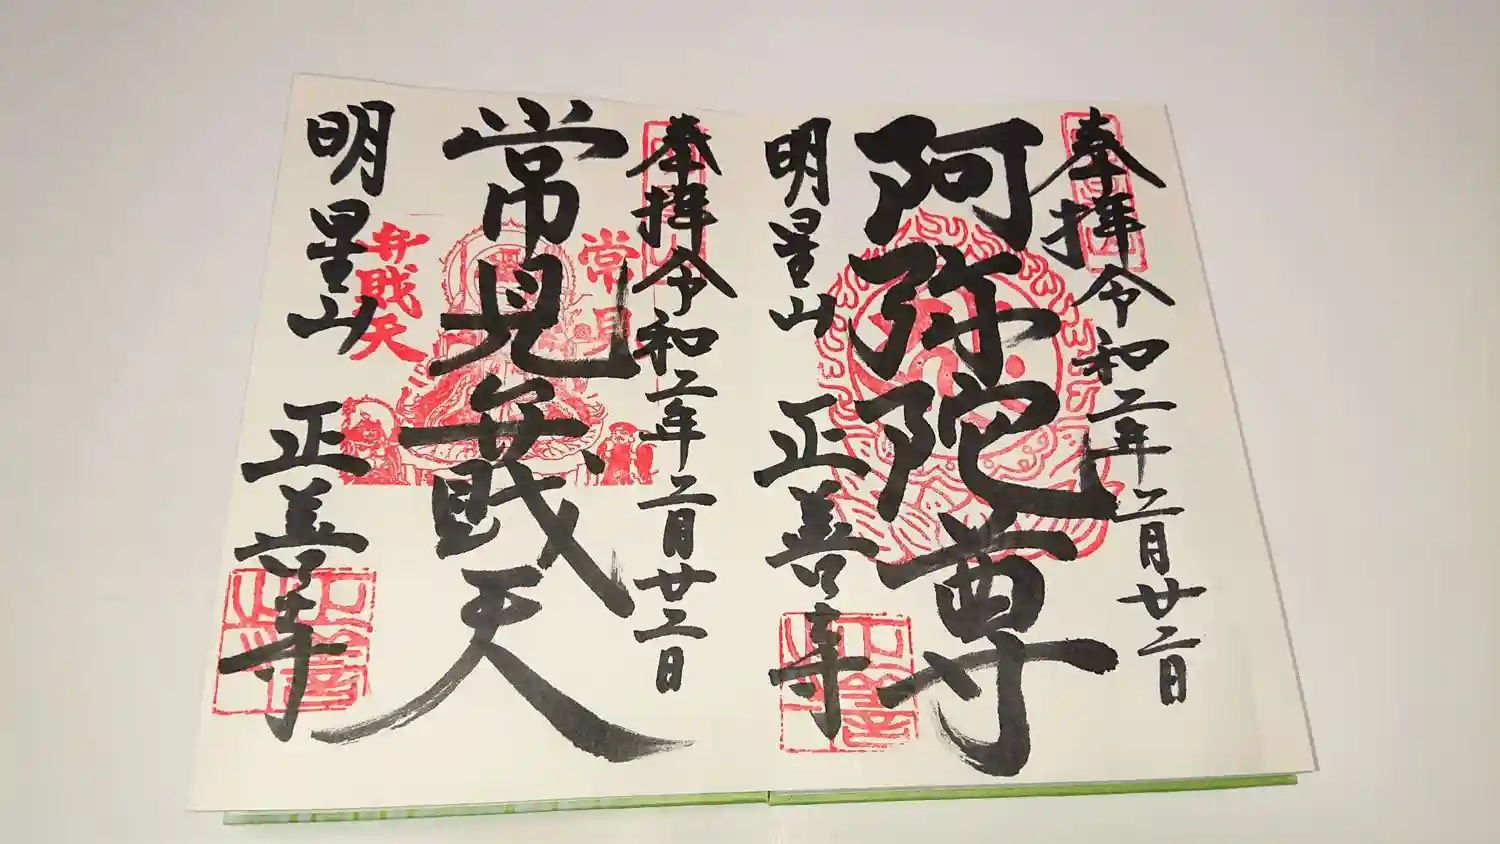 奉拝令和二年二月廿二日
阿弥陀尊
明星山 正善寺
奉拝令和二年二月廿二日
常見弁戝天
常見
弁戝天
明星山 正善寺